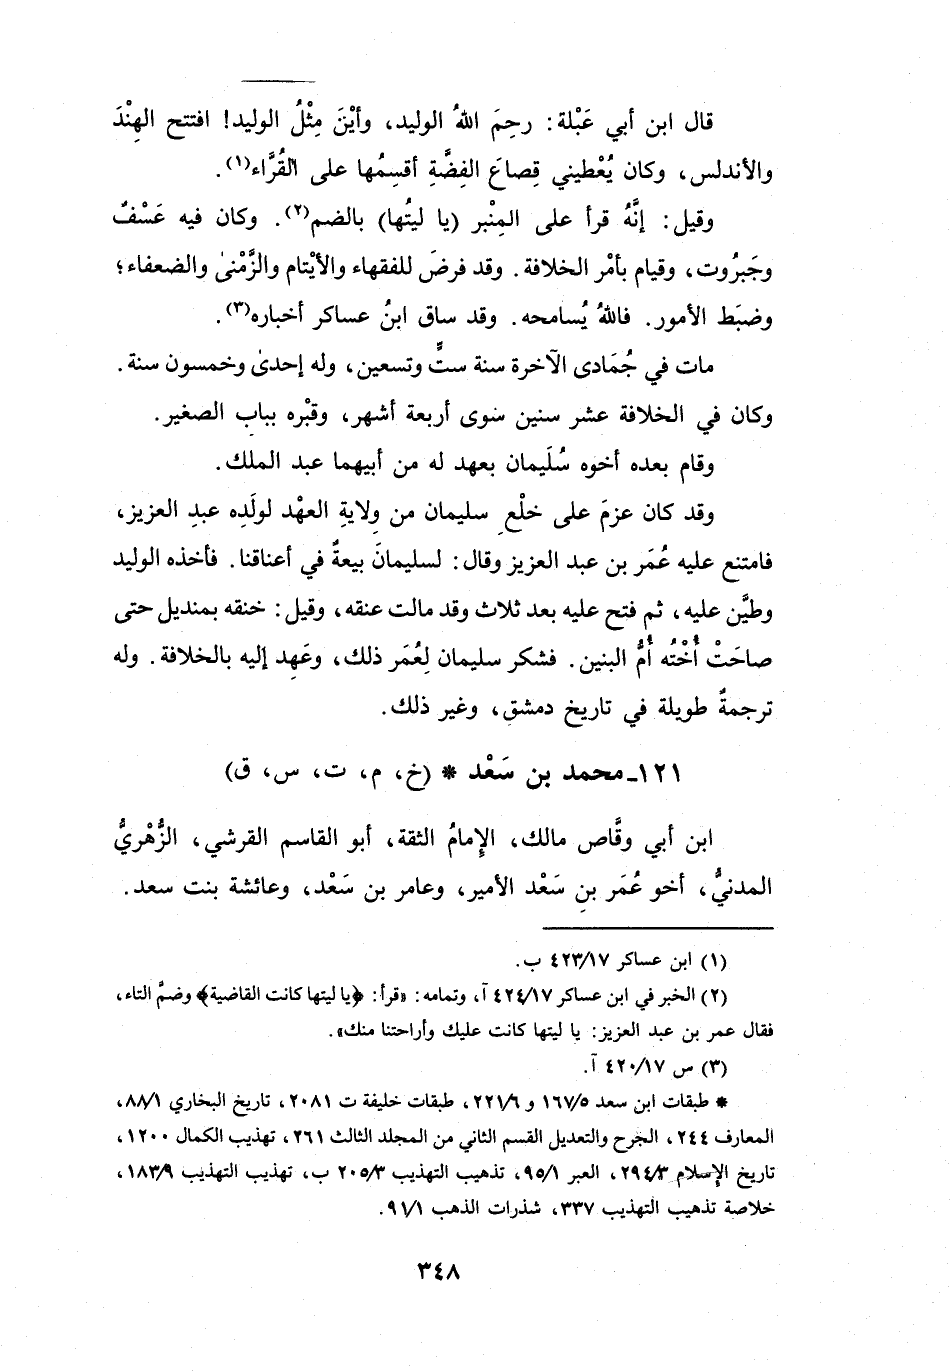 قال ابن أبي عَبْلة: رحِمَ اللهُ الوليد، وأيْنَ مِثْلُ الوليد! افتتح الهِنْدَ
والأندلس، وكان يُعْطيني قِصاعَ الفِضَّةِ أقسِمُها على القُرَّاء(١).
وقيل: إنَّهُ قرأ على المِنْبر (يا ليتُها) بالضم(٢). وكان فيه عَسْفٌ
وجَبرُوت، وقيام بأمْر الخلافة. وقد فرضَ للفقهاء والأيْتام والزَّمْنىٰ والضعفاء؛
وضبَط الأمور. فاللهُ يُسامحه. وقد ساق ابنُ عساكر أخباره(٣).
مات في جُمَادى الآخرة سنة ستٍّ وتسعين، وله إحدىٰ وخمسون سنة.
وكان في الخلافة عشر سنين سَوى أربعة أشهر، وقبْره ببابِ الصغير.
وقام بعده أخوه سُلَيمان بعهد له من أبيهما عبد الملك.
وقد كان عزمَ على خلْعِ سليمان من وِلايةِ العهْد لولَدِه عبدِ العزيز،
فامتنع عليه عُمَر بن عبد العزيز وقال: لسليمانَ بيعةٌ في أعناقنا. فأخذه الوليد
وطيَّن عليه، ثم فتح عليه بعد ثلاث وقد مالت عنقه، وقيل: خنقه بمنديل حتى
صاحَتْ أُخْتُه أمُّ البنين. فشكر سليمان لِعُمَر ذلك، وعَهِد إليه بالخلافة. وله
ترجمةٌ طويلة في تاريخ دمشق، وغير ذلك.
١٢١ـ محمد بن سَعْد * (خ، م، ت، س، ق)
ابن أبي وقَّاص مالك، الإمامُ الثقة، أبو القاسم القرشي، الزُّهْريُّ
المدنيُّ، أخو عُمَر بنِ سَعْد الأمير، وعامر بن سَعْد، وعائشة بنت سعد.
(١) ابن عساكر ٤٢٣/١٧ ب.
(٢) الخبر في ابن عساكر ٤٢٤/١٧ آ، وتمامه: «قرأ: ﴿يا ليتها كانت القاضية﴾ وضمَّ التاء،
فقال عمر بن عبد العزيز: يا ليتها كانت عليك وأراحتنا منك».
(٣) س ٤٢٠/١٧ آ.
* طبقات ابن سعد ١٦٧/٥ و ٢٢١/٦، طبقات خليفة ت ٢٠٨١، تاريخ البخاري ٨٨/١،
المعارف ٢٤٤، الجرح والتعديل القسم الثاني من المجلد الثالث ٢٦١، تهذيب الكمال ١٢٠٠،
تاريخ الإسلام ٢٩٤/٣، العبر ٩٥/١، تذهيب التهذيب ٢٠٥/٣ ب، تهذيب التهذيب ١٨٣/٩،
خلاصة تذهيب التهذيب ٣٣٧، شذرات الذهب ٩١/١.
٣٤٨